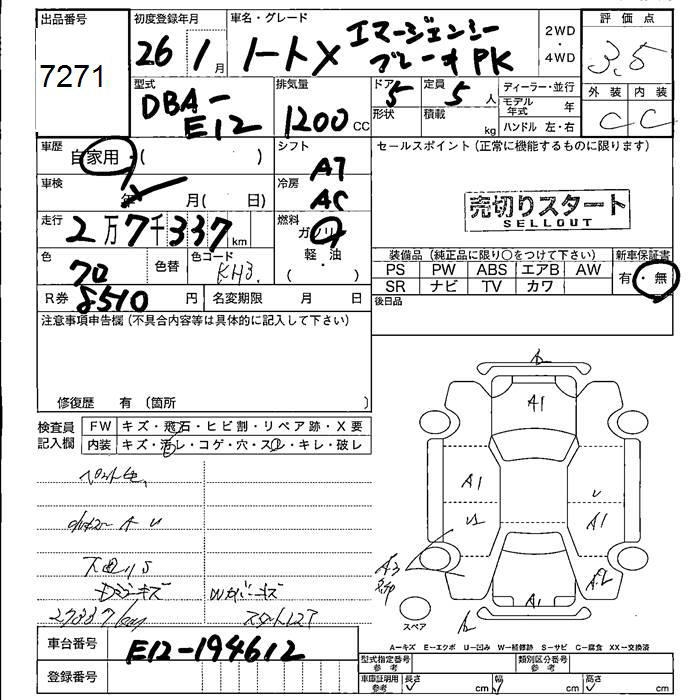 出品番号
7271
初度登録年月
26 1 月
車名・グレード
ノートX エマージェンシー
ブレーキ PK
2WD
・
4WD
評価点
3.5
外装 内装
C C
型式
DBA-
E12
排気量
1200 CC
ドア
5
形状
定員
5 人
積載
kg
ディーラー・並行
モデル
年式 年
ハンドル 左・右
車歴
自家用・( )
シフト
AT
車検
年 月( 日)
冷房
AC
走行
2万7千337 km
燃料
ガソリン
軽・油
( ・ )
色
70
色替
色コード
KH3
R券 8510 円
名変期限 月 日
セールスポイント(正常に機能するものに限ります)
売切りスタート
SELLOUT
装備品(純正品に限り○をつけて下さい)
PS PW ABS エアB AW
SR ナビ TV カワ
新車保証書
有・無
後日品
注意事項申告欄(不具合内容等は具体的に記入して下さい)
修復歴 有(箇所 )
検査員
記入欄
FW キズ・飛石・ヒビ割・リペア跡・X要
内装 キズ・汚レ・コゲ・穴・スレ・キレ・破レ
27337km
A1
A1
U
A1
A3
A2
A1
スペア
A−キズ E−エクボ U−凹み W−補修跡 S−サビ C−腐食 XX−交換済
車台番号
E12-194612
登録番号
型式指定番号
参考
類別区分番号
参考
車庫証明用
参考
長さ cm
幅 cm
高さ cm